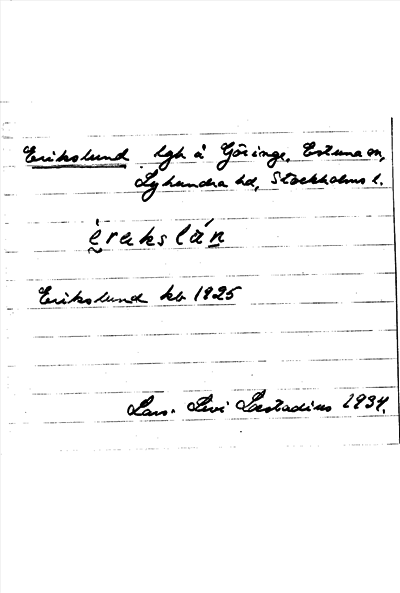 Erikslund lgh å Göringe, Estuna sn,
Lyhundra hd, Stockholms l.
ḛ̀rakslán
Erikslund kb 1925
Lars. Levi Læstadius 1934.